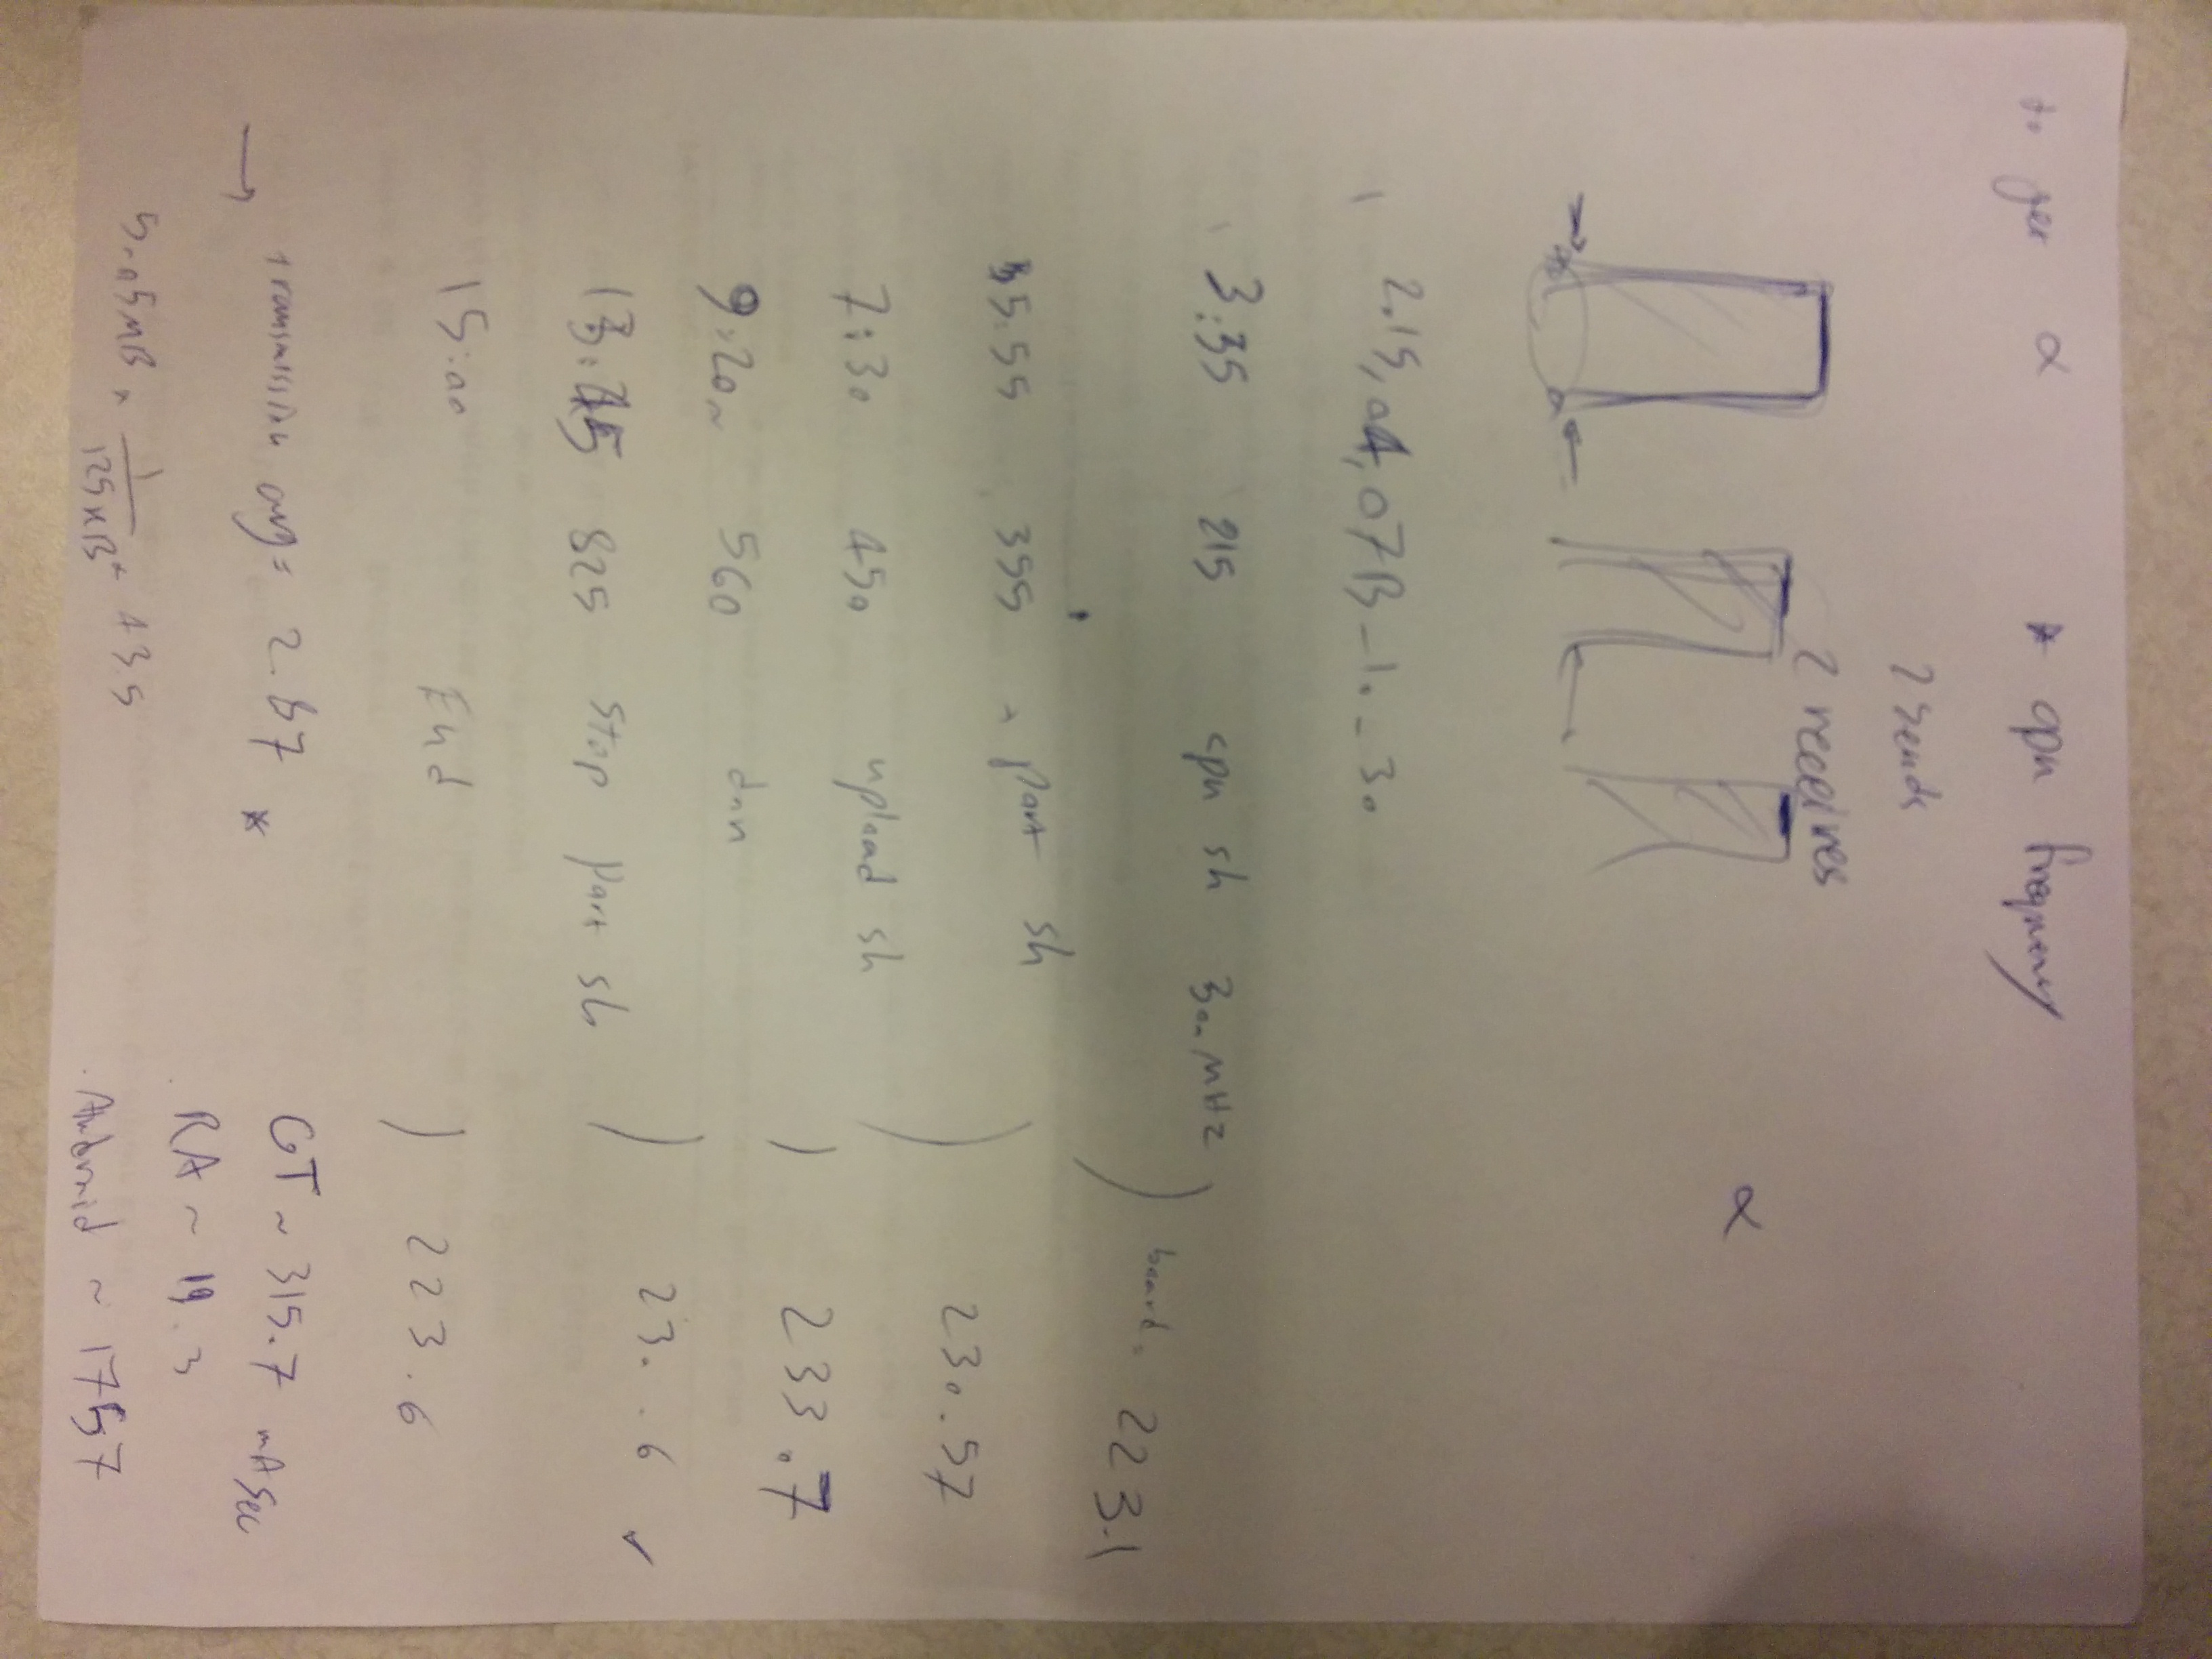 to per α * cpu frequency
2 sends
2 receives
α
2.15, 04, 07 B - 1. - 30
3:35 215 cpu sh 300 MHz
board = 223.1
5:55 355 part sh
230.57
7:30 450 upload sh
233.7
9:20 560 dun
230.6
13:45 825 stop part sh
15:00 End
223.6
→ transmission avg = 2.67 *
GT ~ 315.7 mA sec
RA ~ 19.3
5.05MB × 1/125KB +35
Android ~ 1757